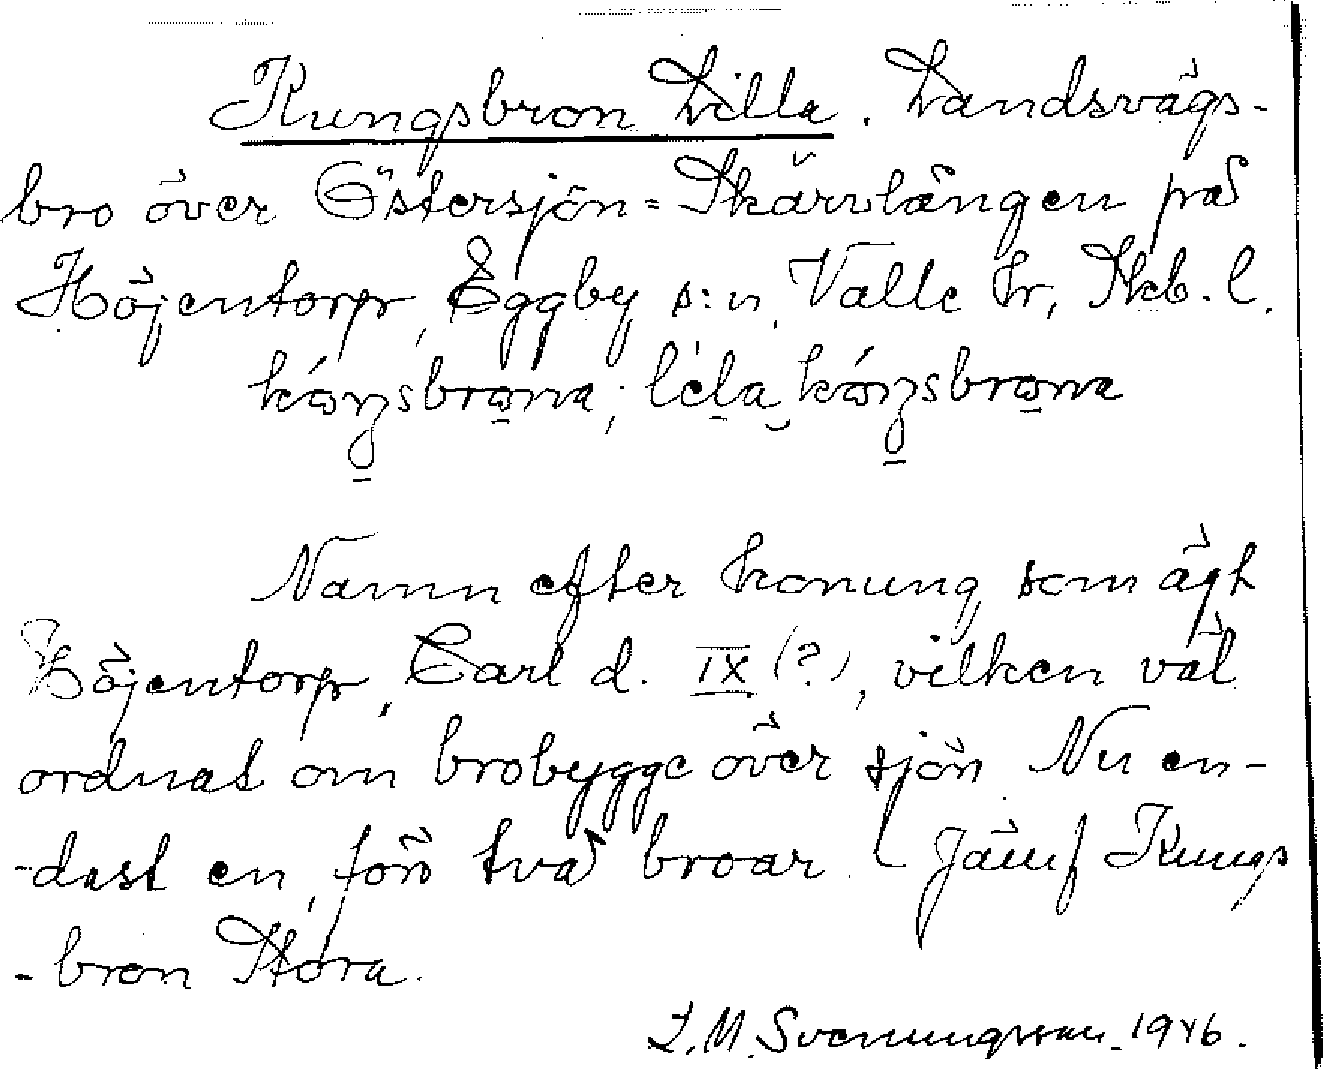 Kungsbron Lilla. Landsvägs-
bro över Östersjön = Skärvlången på
Höjentorp, Eggby s:n, Valle hr, Skb. l.
lela
Namn efter konung som ägt
Höjentorp, Carl d. IX (?), vilken väl
ordnat om brobygge över sjön Nu en-
-dast en, förr två broar. - Jämf Kungs
-bron Stora.
L.M. Svenungsson 1946.